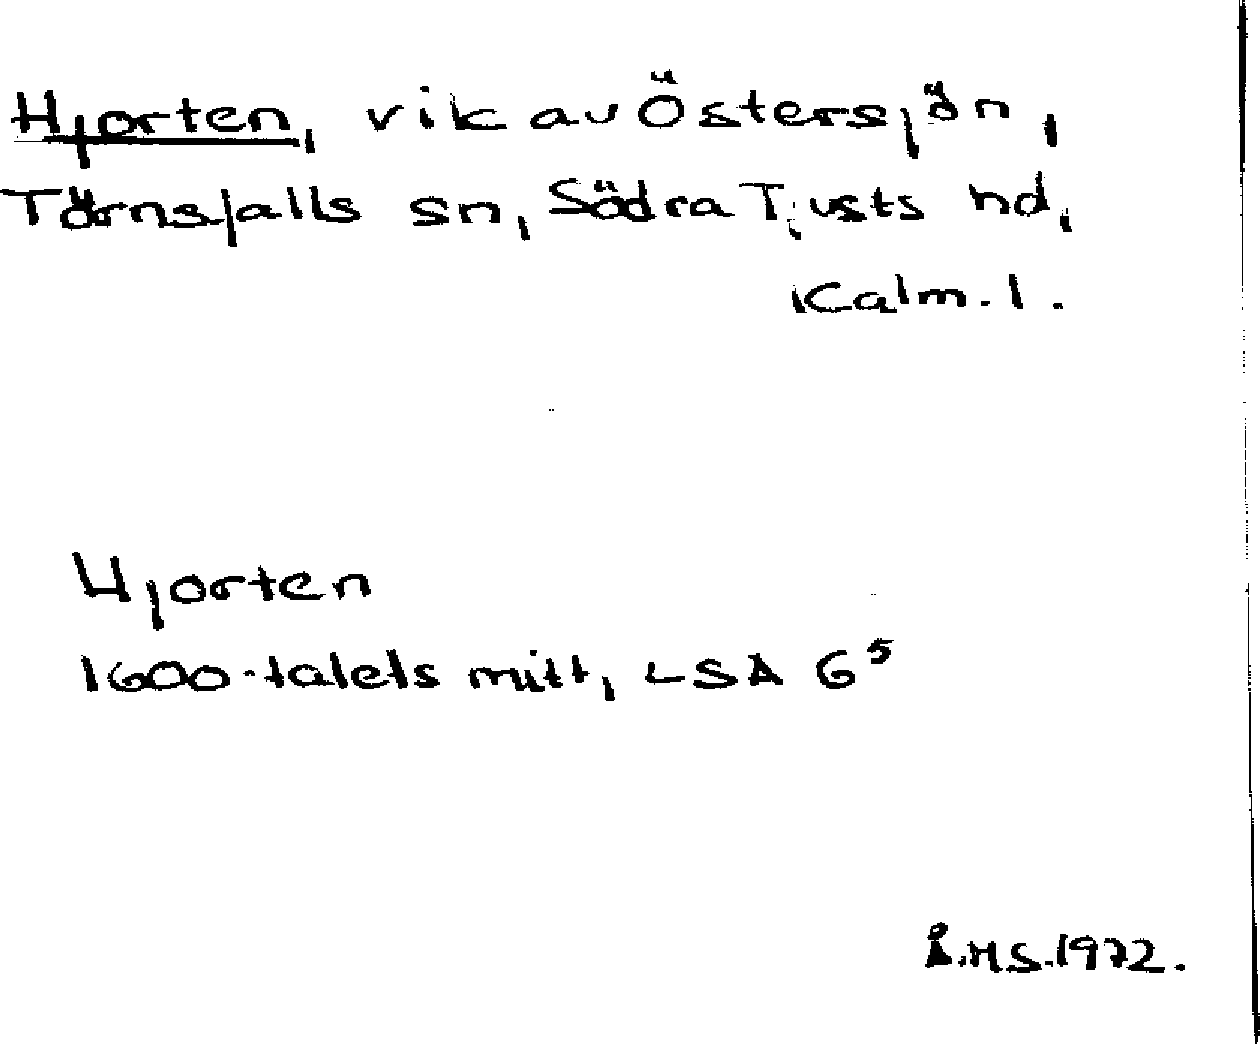 Hjorten, vik av Östersjön,
Törnsfalls sn, Södra Tjusts hd,
Kalm. l.
Hjorten
1600-talets mitt, LSA G⁵
Å.H.S. 1972.